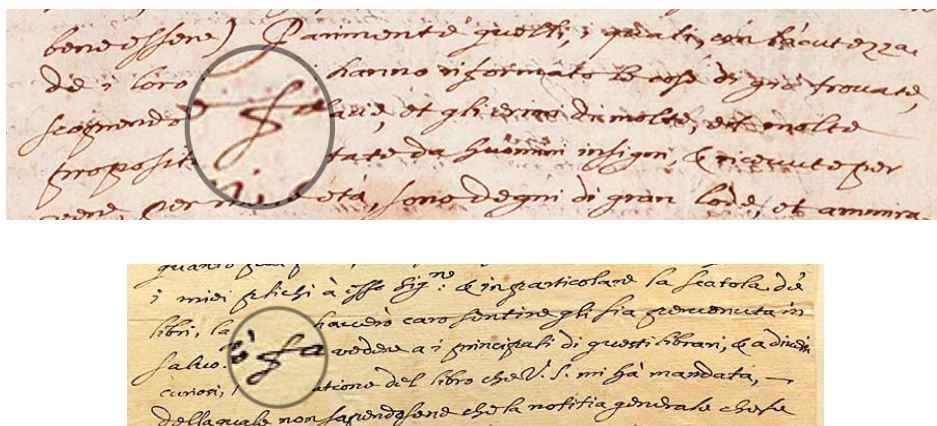 bene essere) Parimente quelli, i quali, con l'acutezza
de i loro hanno riformato le cose di già trovate,
scoprendo le fa lacie, et gli errori di molte, et molte
proposit tate da huomini insigni, & ricevute per
età, sono degni di gran lode, et ammira
quanto
i miei plichi à esso Sig.re: & in particolare la scatola de
libri, la haverò caro sentire gli sia pervenuta in
salvo. ò fa vedere a i principali di questi librari, & a diversi
curiosi, l atione del libro che V. S. mi hà mandata,
della quale non sapendosene che la notitia generale che